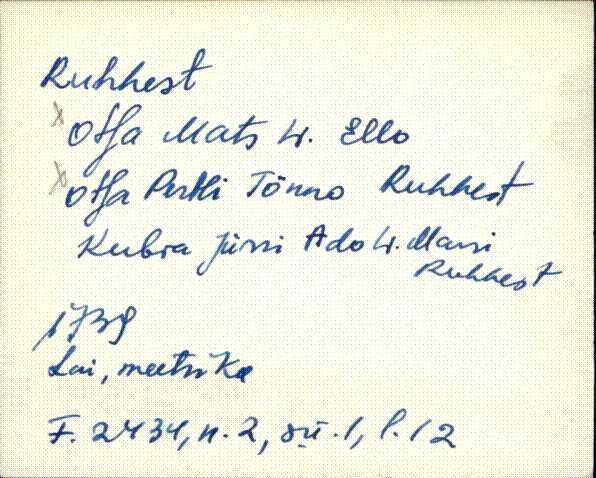 Ruhhest
x Otsa Mats W. Ello
x Otsa Pertli Tönno Ruhhest
Kubra Jürri Ado W. Marri
Ruhhest
1739
Lai, meetrika
F. 2434, n. 2, sü. 1, l. 12